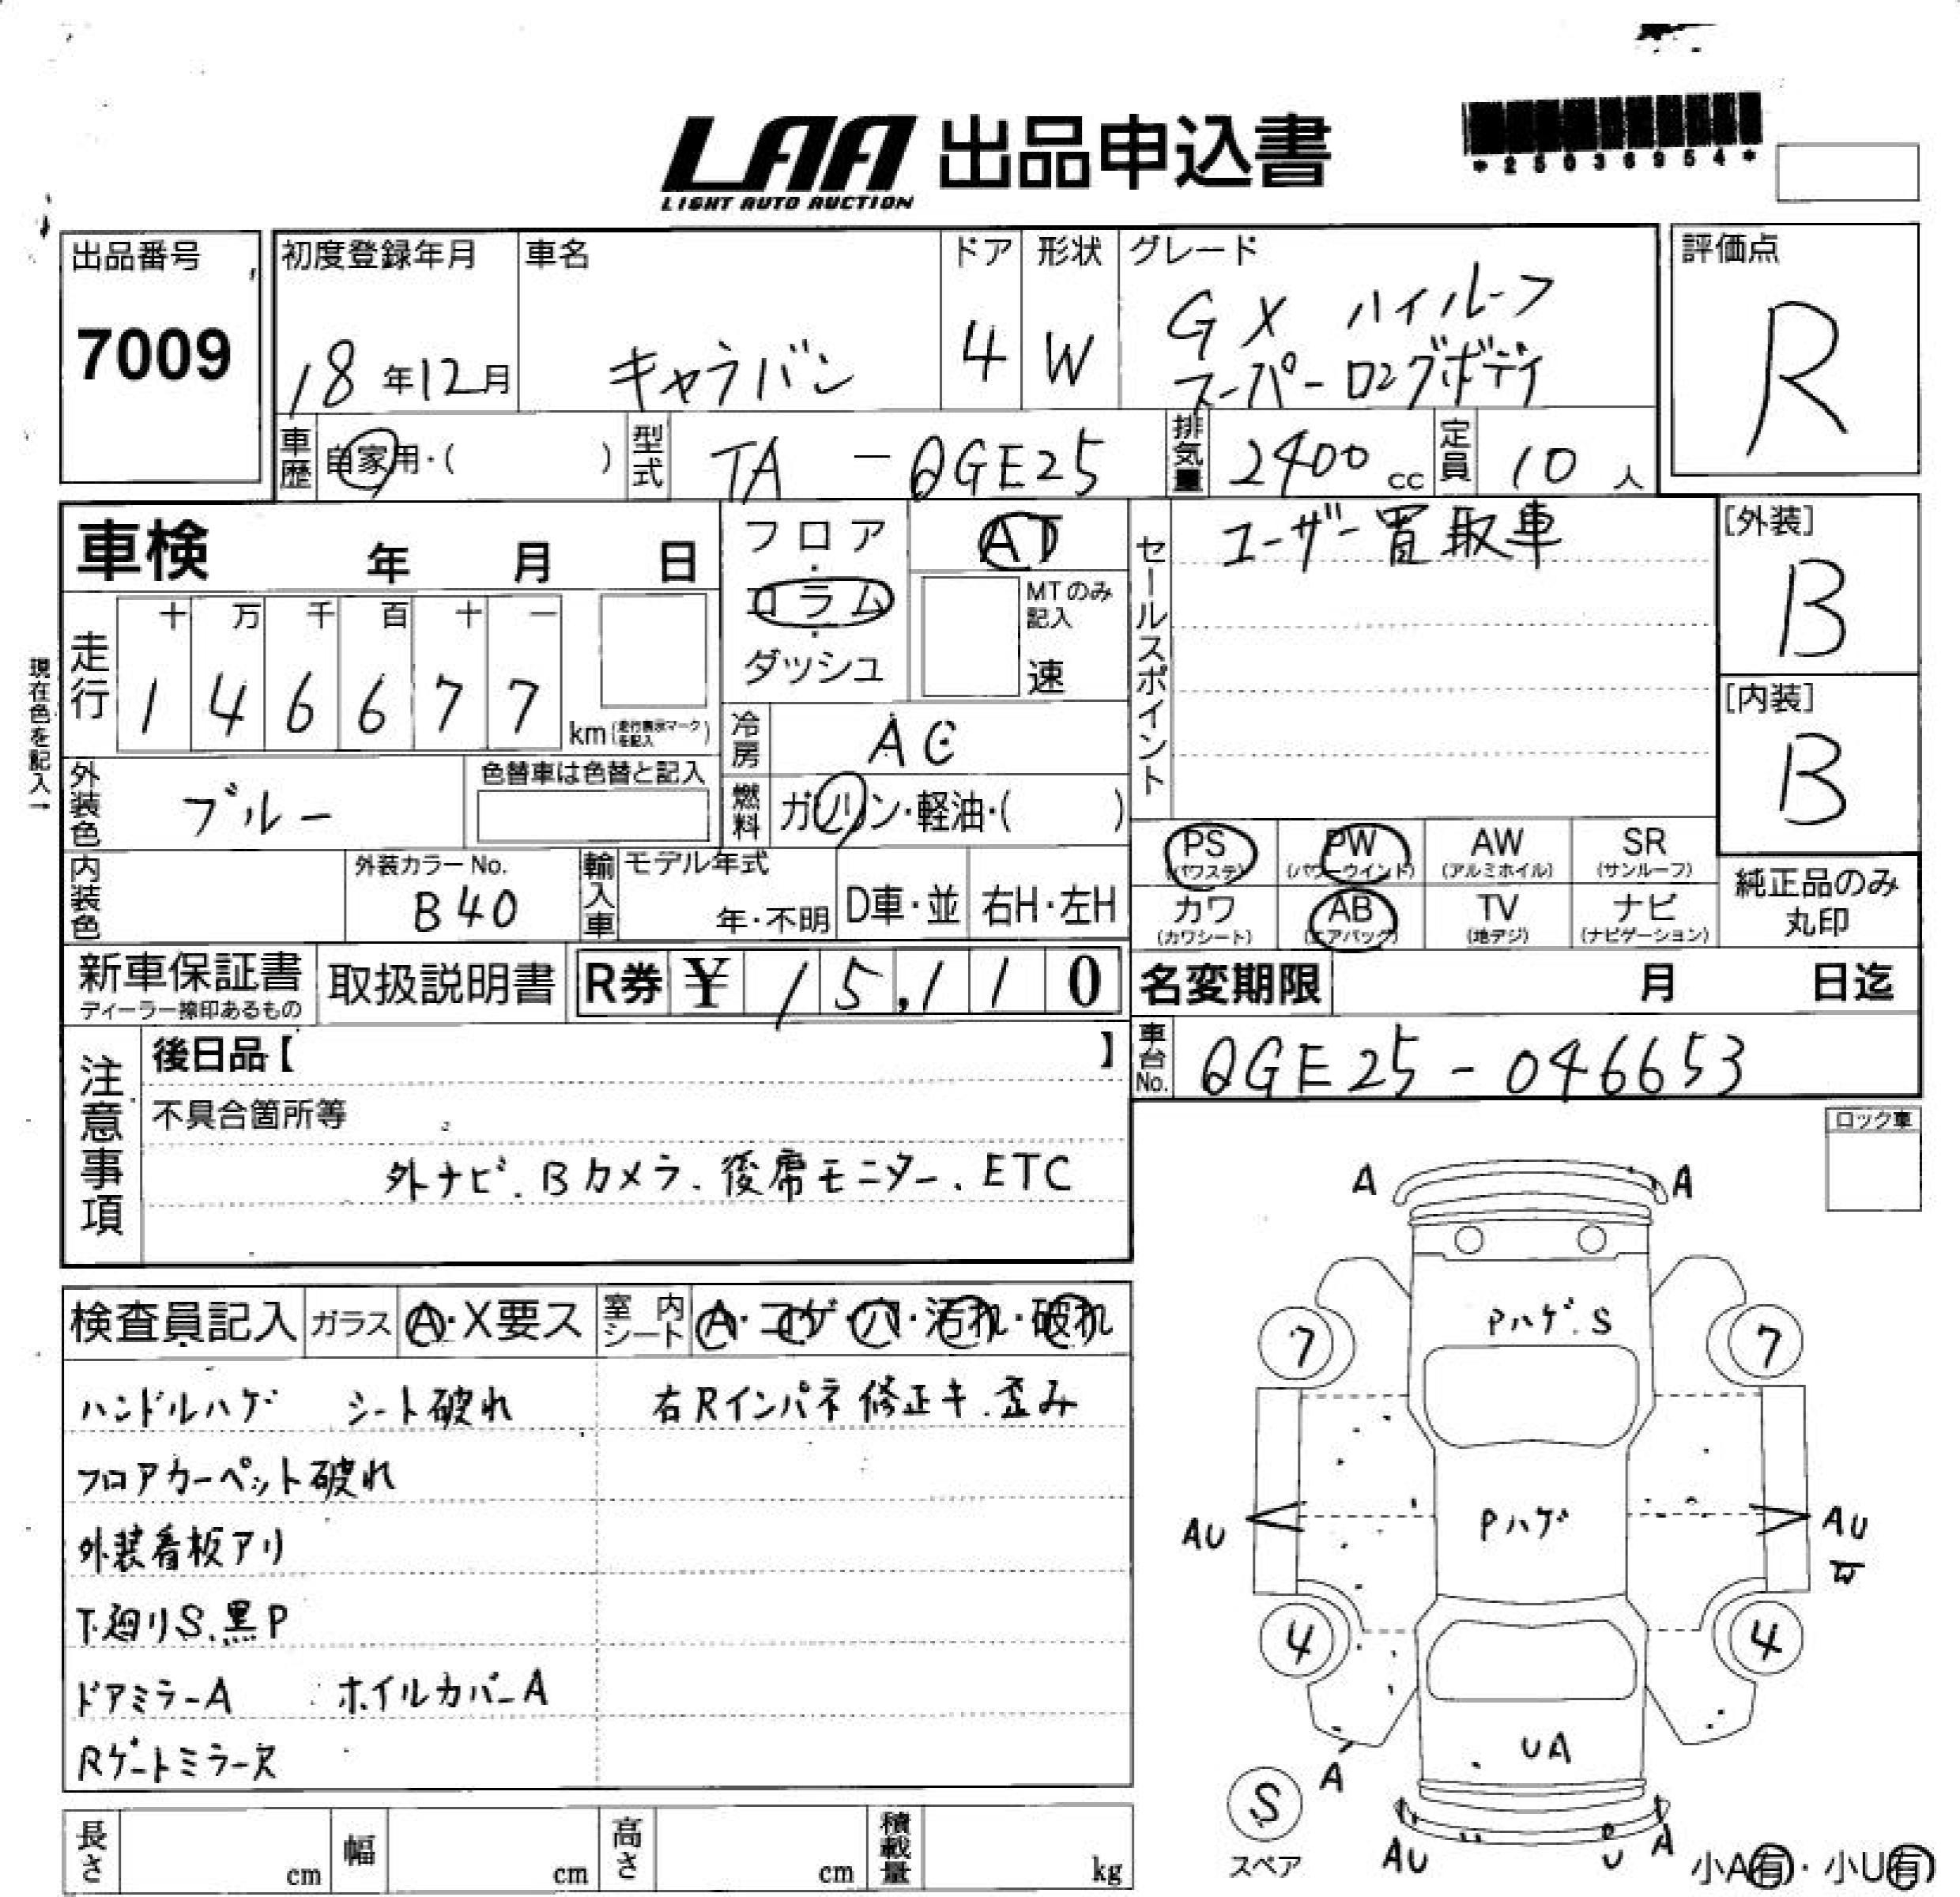 LAA 出品申込書
LIGHT AUTO AUCTION
*25036954*
出品番号
7009
初度登録年月
18年12月
車名
キャラバン
ドア
4
形状
W
グレード
GX ハイルーフ
スーパーロングボディ
評価点
R
車歴 自家用・( )
型式 TA-QGE25
排気量 2400cc
定員 10人
車検 年 月 日
フロア・コラム・ダッシュ
AT
MTのみ記入
速
セールスポイント
ユーザー買取車
[外装]
B
[内装]
B
現在色を記入→
走行
十 万 千 百 十 一
1 4 6 6 7 7
km(走行表示マークを記入)
冷房 AC
燃料 ガソリン・軽油・( )
外装色 ブルー
色替車は色替と記入
内装色
外装カラーNo.
B40
輸入車
モデル年式
年・不明
D車・並
右H・左H
PS (パワステ)
PW (パワーウインド)
AW (アルミホイル)
SR (サンルーフ)
カワ (カワシート)
AB (エアバック)
TV (地デジ)
ナビ (ナビゲーション)
純正品のみ
丸印
新車保証書
ディーラー捺印あるもの
取扱説明書
R券 ¥ 15,110
名変期限 月 日迄
車台No. QGE25-046653
注意事項
後日品【 】
不具合箇所等
外ナビ.Bカメラ.後席モニター.ETC
ロック車
検査員記入
ガラス A・X要ス
室内シート A・コゲ・穴・汚れ・破れ
ハンドルハゲ シート破れ
右Rインパネ修正キ.歪み
フロアカーペット破れ
外装看板アリ
下廻りS.黒P
ドアミラーA ホイルカバーA
Rゲートミラーヌ
A A
Pハゲ.S
7 7
Pハゲ
AU AU
4 4
UA
A
S
スペア
AU U A
小A有・小U有
長さ cm
幅 cm
高さ cm
積載量 kg